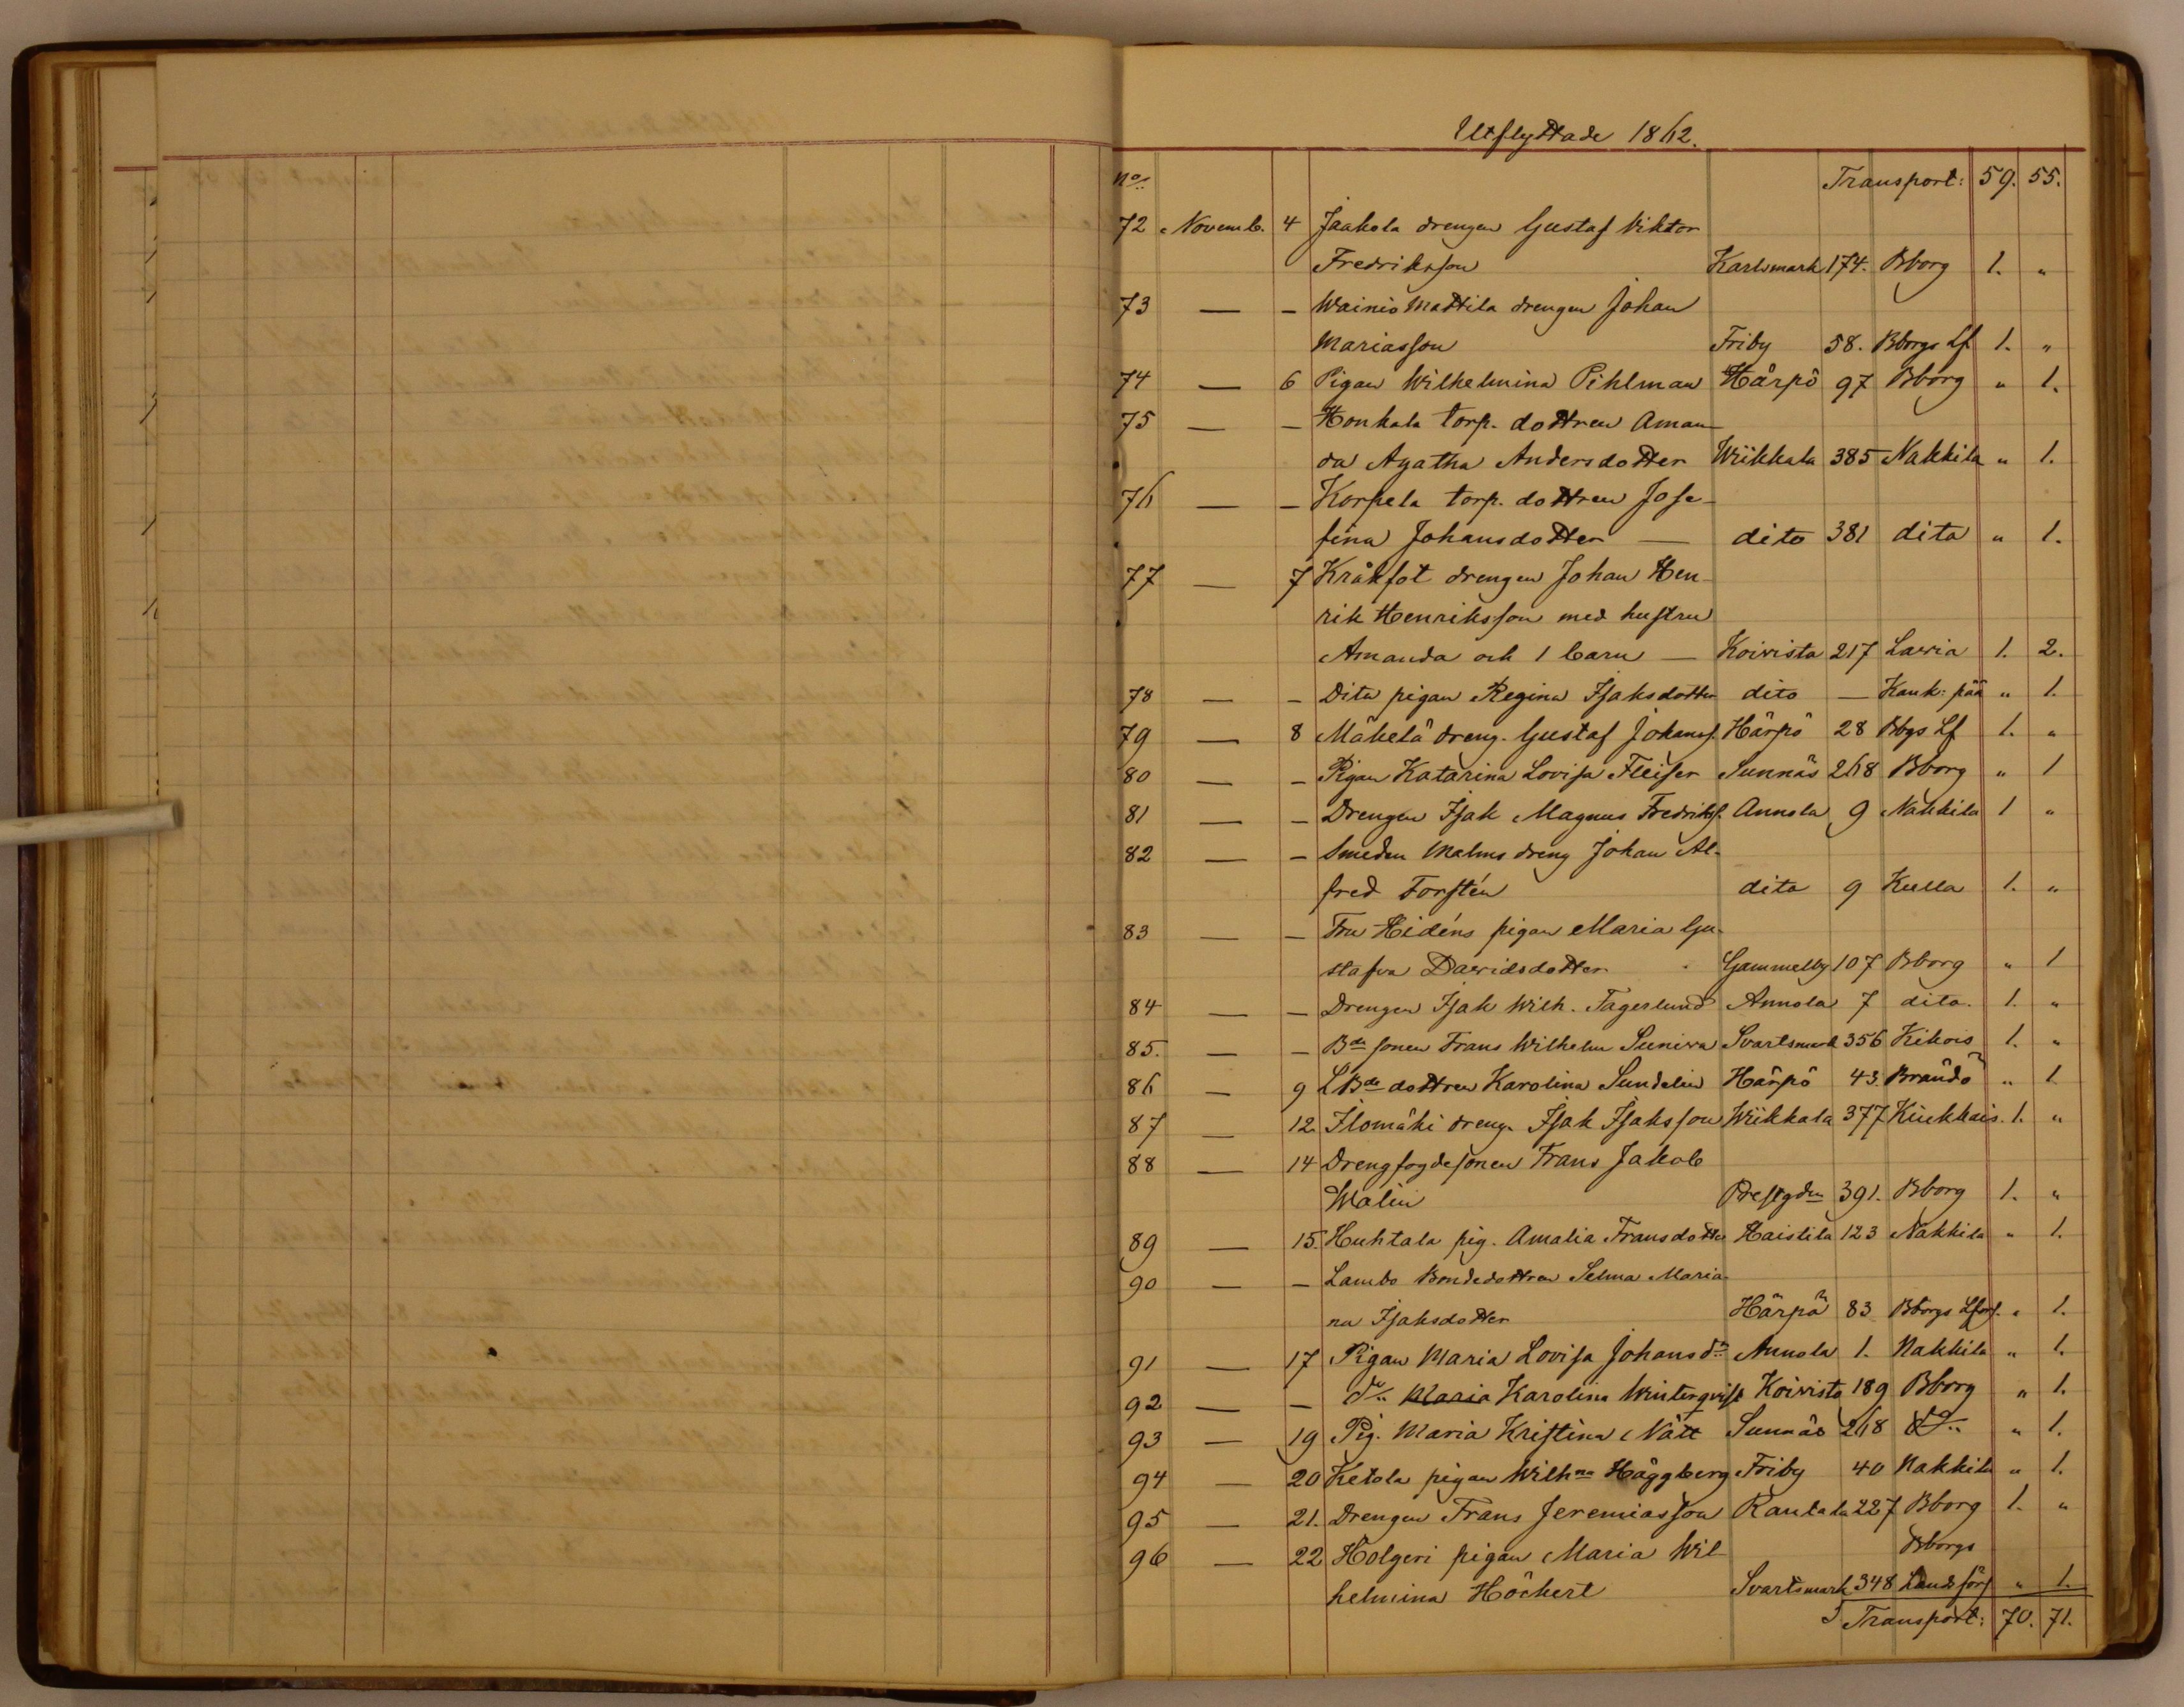 Utflyttade 1862.
No. Transport: 59. 55.
72 Novemb. 4 Jaakola drengen Gustaf Viktor
Fredriksson Karlsmark 174. Bborg 1. "
73 — — Wainio Mattila drengen Johan
Mariasson Friby 58. Bborgs Lf 1. "
74 — 6 Pigan Wilhelmina Pihlman Härpö 97 Bborg " 1.
75 — — Honkala torp. dottren Aman-
da Agatha Andersdotter Wiikkala 385 Nakkila " 1.
76 — — Korpela torp. dottren Jose-
fina Johansdotter — dito 381 dito " 1.
77 — 7 Kråkfot drengen Johan Hen-
rik Henriksson med hustru
Amanda och 1 barn — Koivisto 217 Lavia 1. 2.
78 — — Dito pigan Regina Isaksdotter dito — Kank: pää " 1.
79 — 8 Mäkelä dreng. Gustaf Johanss. Härpö 28 Bbgs Lf 1. "
80 — — Pigan Katarina Lovisa Fleiser Sunnäs 268 Bborg " 1
81 — — Drengen Isak Magnus Fredrikss. Annola 9 Nakkila 1 "
82 — — Smeden Malms dreng Johan Al-
fred Forstén dito 9 Kulla 1. "
83 — — Fru Hidéns pigan Maria Gu-
stafva Davidsdotter Gammelby 107 Bborg " 1
84 — — Drengen Isak Wilh. Fagerlund Annola 7 dito. 1. "
85. — — Bde sonen Frans Wilhelm Suniva Svartsmark 356 Kikois 1. "
86 — 9 LBde dottren Karolina Sundelin Härpö 43. Brändö " 1
87 — 12. Ilomäki dreng. Isak Isaksson Wiikkala 377 Kiukkais. 1. "
88 — 14 Drengfogdesonen Frans Jakob
Walin Prestgdn 391. Bborg 1. "
89 — 15. Huhtala pig. Amalia Fransdotter Haistila 123 Nakkila " 1.
90 — — Lambo Bondedottren Selma Maria-
na Isaksdotter Härpö 83 Bborgs Lfors. " 1.
91 — 17 Pigan Maria Lovisa Johansdr Annola 1. Nakkila " 1.
92 — — do Maria Karolina Winterqvist Koivisto 189 Bborg " 1.
93 — 19 Pig. Maria Kristina Nätt Sunnäs 268 do " 1.
94 — 20 Ketola pigan Wilhna Häggberg Friby 40 Nakkila " 1.
95 — 21. Drengen Frans Jeremiasson Rantala 227 Bborg 1. "
96 — 22 Holgeri pigan Maria Wil- Bborgs
helmina Höckert Svartsmark 348 Landsförs " 1.
Transport: 70. 71.